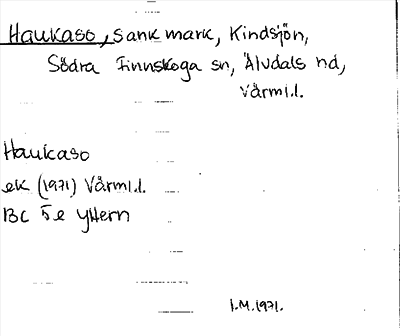 Haukaso, sank mark, Kindsjön,
Södra Finnskoga sn, Älvdals hd,
Värml.l.
Haukaso
ek (1971) Värml.l.
BC 5e Yttern
I.M.1971.